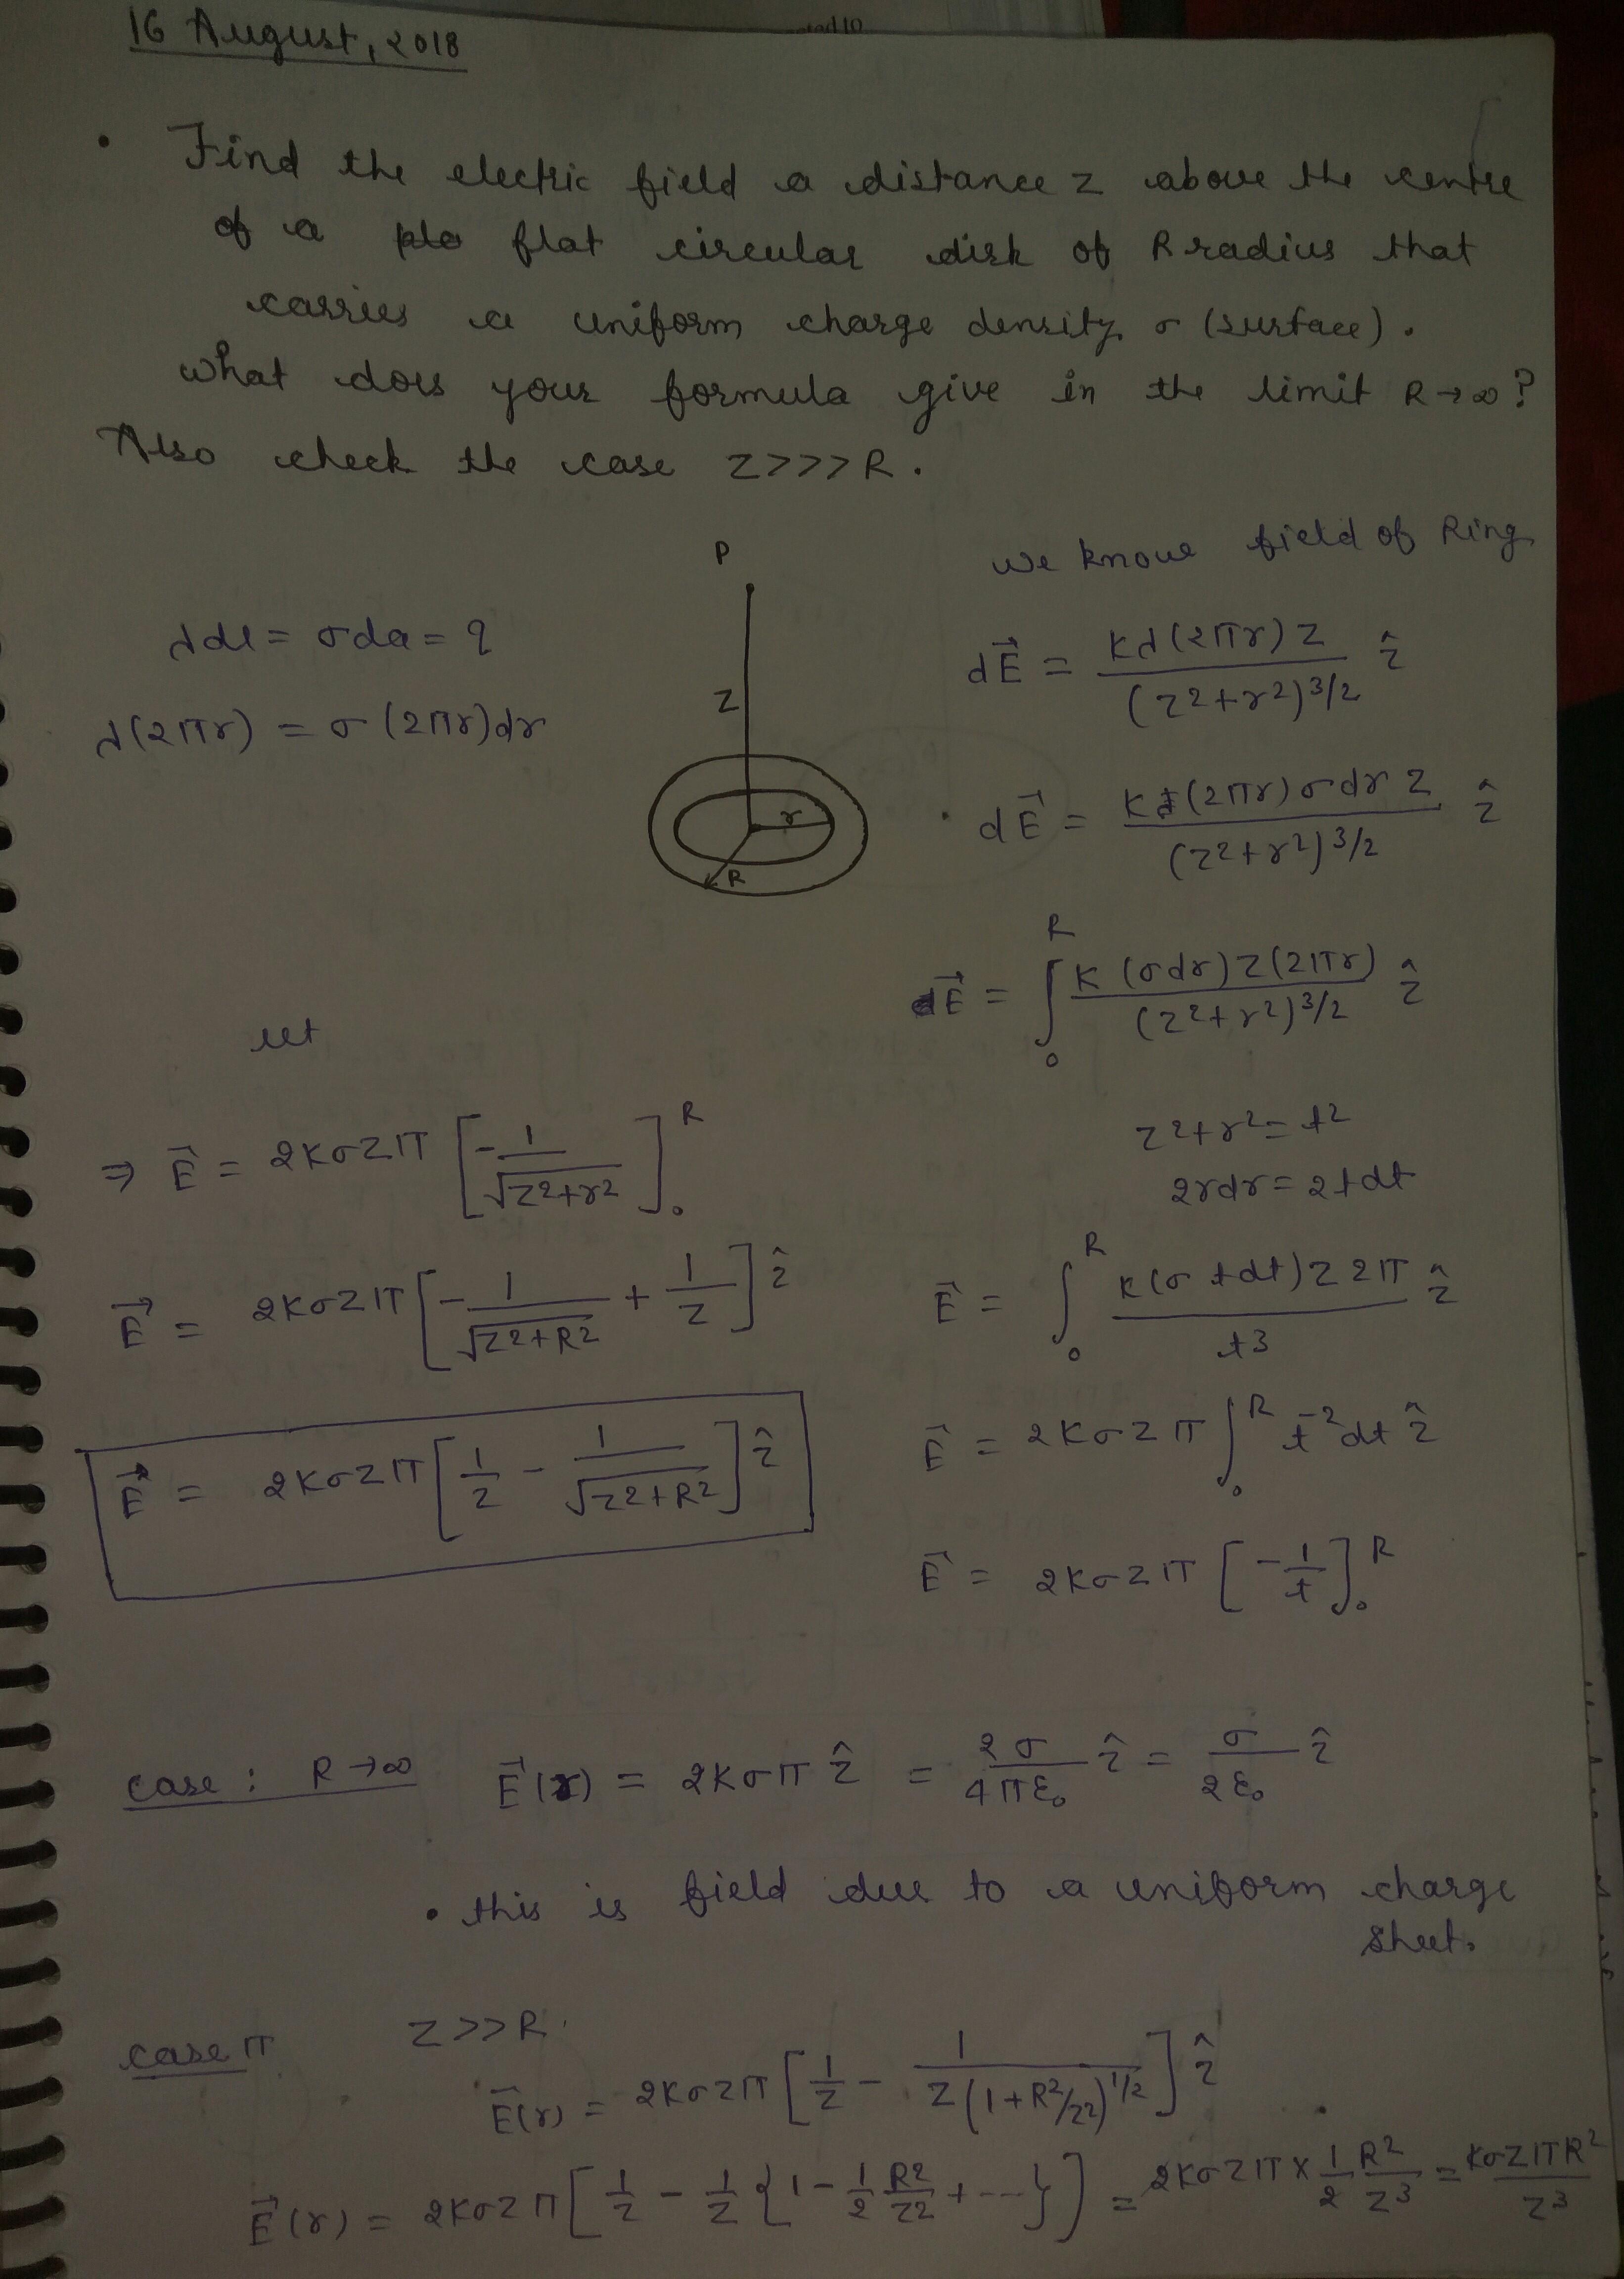 16 August, 2018
• Find the electric field a distance z above the centre
of a flat circular disk of R radius that
carries a uniform charge density σ (surface).
What does your formula give in the limit R→∞?
Also check the case z>>>R.
we know field of Ring
P
z
r
R
λdl = σda = q
λ(2πr) = σ(2πr)dr
dE⃗ = Kλ(2πr)z / (z²+r²)^3/2 ẑ
• dE⃗ = K(2πr)σdr z / (z²+r²)^3/2 ẑ
E⃗ = ∫₀ᴿ K(σdr)z(2πr) / (z²+r²)^3/2 ẑ
let
z²+r²=t²
2rdr=2tdt
E⃗ = ∫₀ᴿ K(σ tdt)z 2π / t3 ẑ
E⃗ = 2Kσzπ ∫₀ᴿ t⁻²dt ẑ
E⃗ = 2Kσzπ [-1/t]₀ᴿ
⇒ E⃗ = 2Kσzπ [-1/√z²+r²]₀ᴿ
E⃗ = 2Kσzπ [-1/√z²+R² + 1/z] ẑ
E⃗ = 2Kσzπ [1/z - 1/√z²+R²] ẑ
case : R→∞ E⃗(r) = 2Kσπ ẑ = 2σ/4πε₀ ẑ = σ/2ε₀ ẑ
• this is field due to a uniform charge
sheet.
case II z>>R.
E⃗(r) = 2Kσzπ [1/z - 1/z(1+R²/z²)^1/2] ẑ
E⃗(r) = 2Kσzπ [1/z - 1/z {1 - 1/2 R²/z² + ---}] = 2Kσzπ × 1/2 R²/z³ = KσzπR²/z³